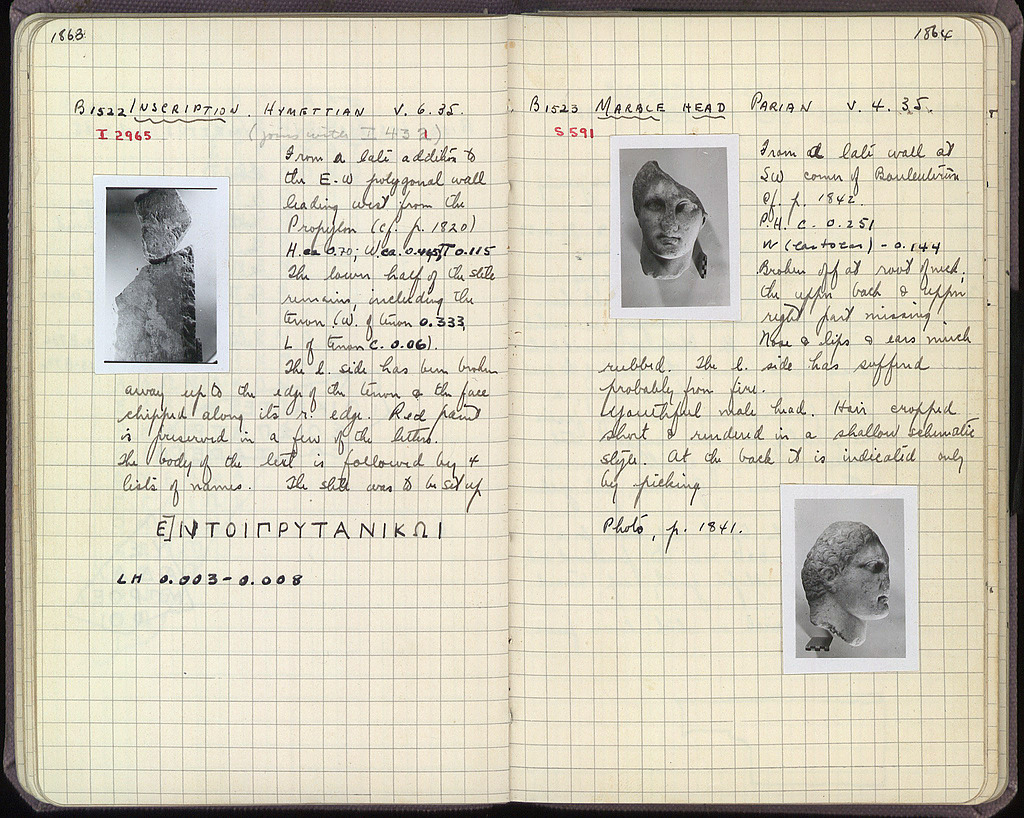 1863
B1522 INSCRIPTION. HYMETTIAN V. 6. 35.
I 2965
(joins with I 432)
From a late addition to
the E.W polygonal wall
leading west from the
Propylon (cf. p. 1820)
H. ca 0.70; W ca. 0.445; T 0.115
The lower half of the stele
remains, including the
tenon. (W. of tenon 0.333,
L of tenon c. 0.06).
The l. side has been broken
away up to the edge of the tenon & the face
chipped along its r. edge. Red paint
is preserved in a few of the letters.
The body of the text is followed by 4
lists of names. The stele was to be set up
Ε]ΝΤΟΙΠΡΥΤΑΝΙΚΩΙ
LH 0.003-0.008
1864
B1523 MARBLE HEAD PARIAN V. 4. 35.
S 591
From a late wall at
SW corner of Bouleuterion
cf. p. 1842.
P.H. C. 0.251
W (ear to ear) - 0.144
Broken off at root of neck,
the upper back & upper
right part missing
Nose & lips & ears much
rubbed. The l. side has suffered
probably from fire.
Youthful male head. Hair cropped
short & rendered in a shallow schematic
style. At the back it is indicated only
by picking
Photo, p. 1841.